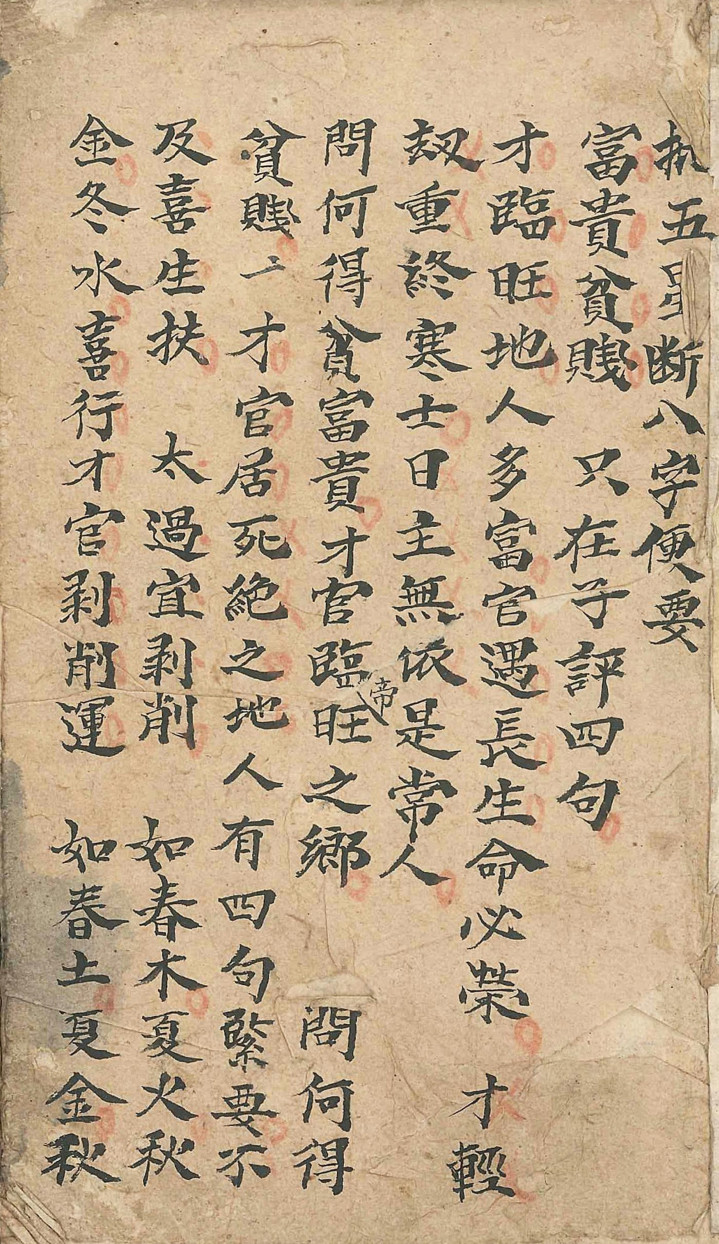 五星断八字便要
富貴貧賤 只在子評四句
才臨旺地人多富官遇長生命必榮 才輕
刼重終寒士日主無依是常人
問何得貧富貴才官臨帝旺之鄉 問何得
貧賤亠才官居死絶之地人有四句緊要不
及喜生扶 太過宜剥削 如春木夏火秋
金冬水喜行才官剥削運 如春土夏金秋